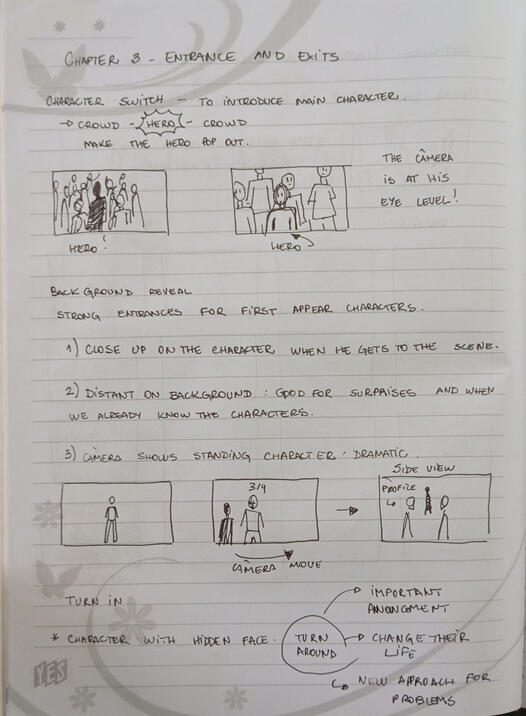 CHAPTER 3 - ENTRANCE AND EXITS
CHARACTER SWITCH - TO INTRODUCE MAIN CHARACTER.
→ CROWD - HERO - CROWD
MAKE THE HERO POP OUT.
THE CÂMERA
IS AT HIS
EYE LEVEL!
HERO!
HERO
BACKGROUND REVEAL
STRONG ENTRANCES FOR FIRST APPEAR CHARACTERS.
1) CLOSE UP ON THE CHARACTER WHEN HE GETS TO THE SCENE.
2) DISTANT ON BACKGROUND: GOOD FOR SURPRISES AND WHEN
WE ALREADY KNOW THE CHARACTERS.
3) CÂMERA SHOWS STANDING CHARACTER: DRAMATIC.
SIDE VIEW
3/4
PROFILE
CÂMERA MOVE
TURN IN
* CHARACTER WITH HIDDEN FACE.
TURN
AROUND
→ IMPORTANT
ANOUNCMENT
→ CHANGE THEIR
LIFE
→ NEW APPROACH FOR
PROBLEMS
YES